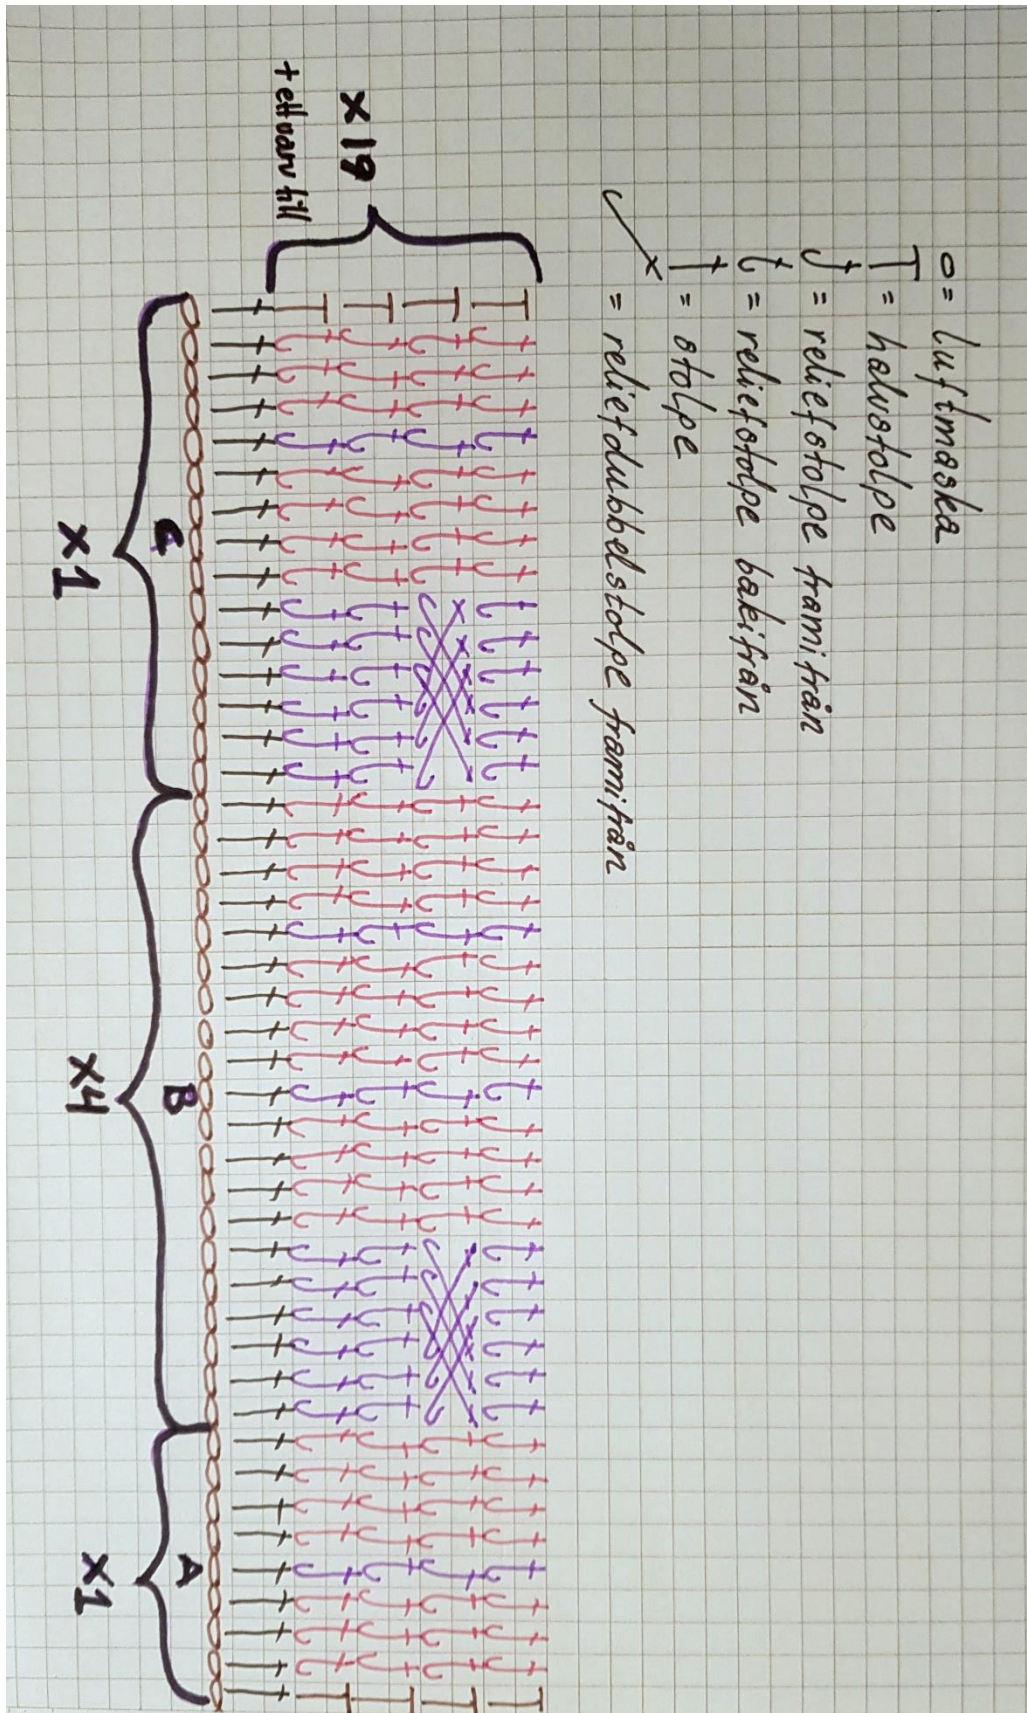 o = luftmaska
T = halvstolpe
= reliefstolpe framifrån
= reliefstolpe bakifrån
= stolpe
= reliefdubbelstolpe framifrån
x19
+ ett varv till
C
x1
B
x4
A
x1